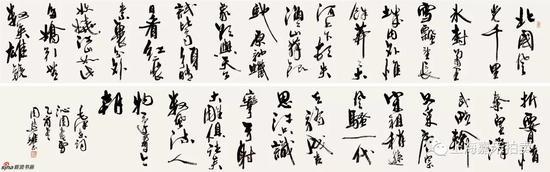 北國風
光千里
冰封萬里
雪飄望長
城內外惟
餘莽莽大
河上下頓失
滔滔山舞銀
蛇原馳蠟
象欲與天公
試比高須晴
日看紅裝
素裹分外
妖嬈江山如此
多嬌引無
數英雄競
折腰惜
秦皇漢
武略輸
文采唐宗
宋祖稍遜
風騷一代
天驕成吉
思汗只識
彎弓射
大雕俱往矣
數風流人
物還看今
朝
毛澤東詞
沁園春雪
sina 新浪书画